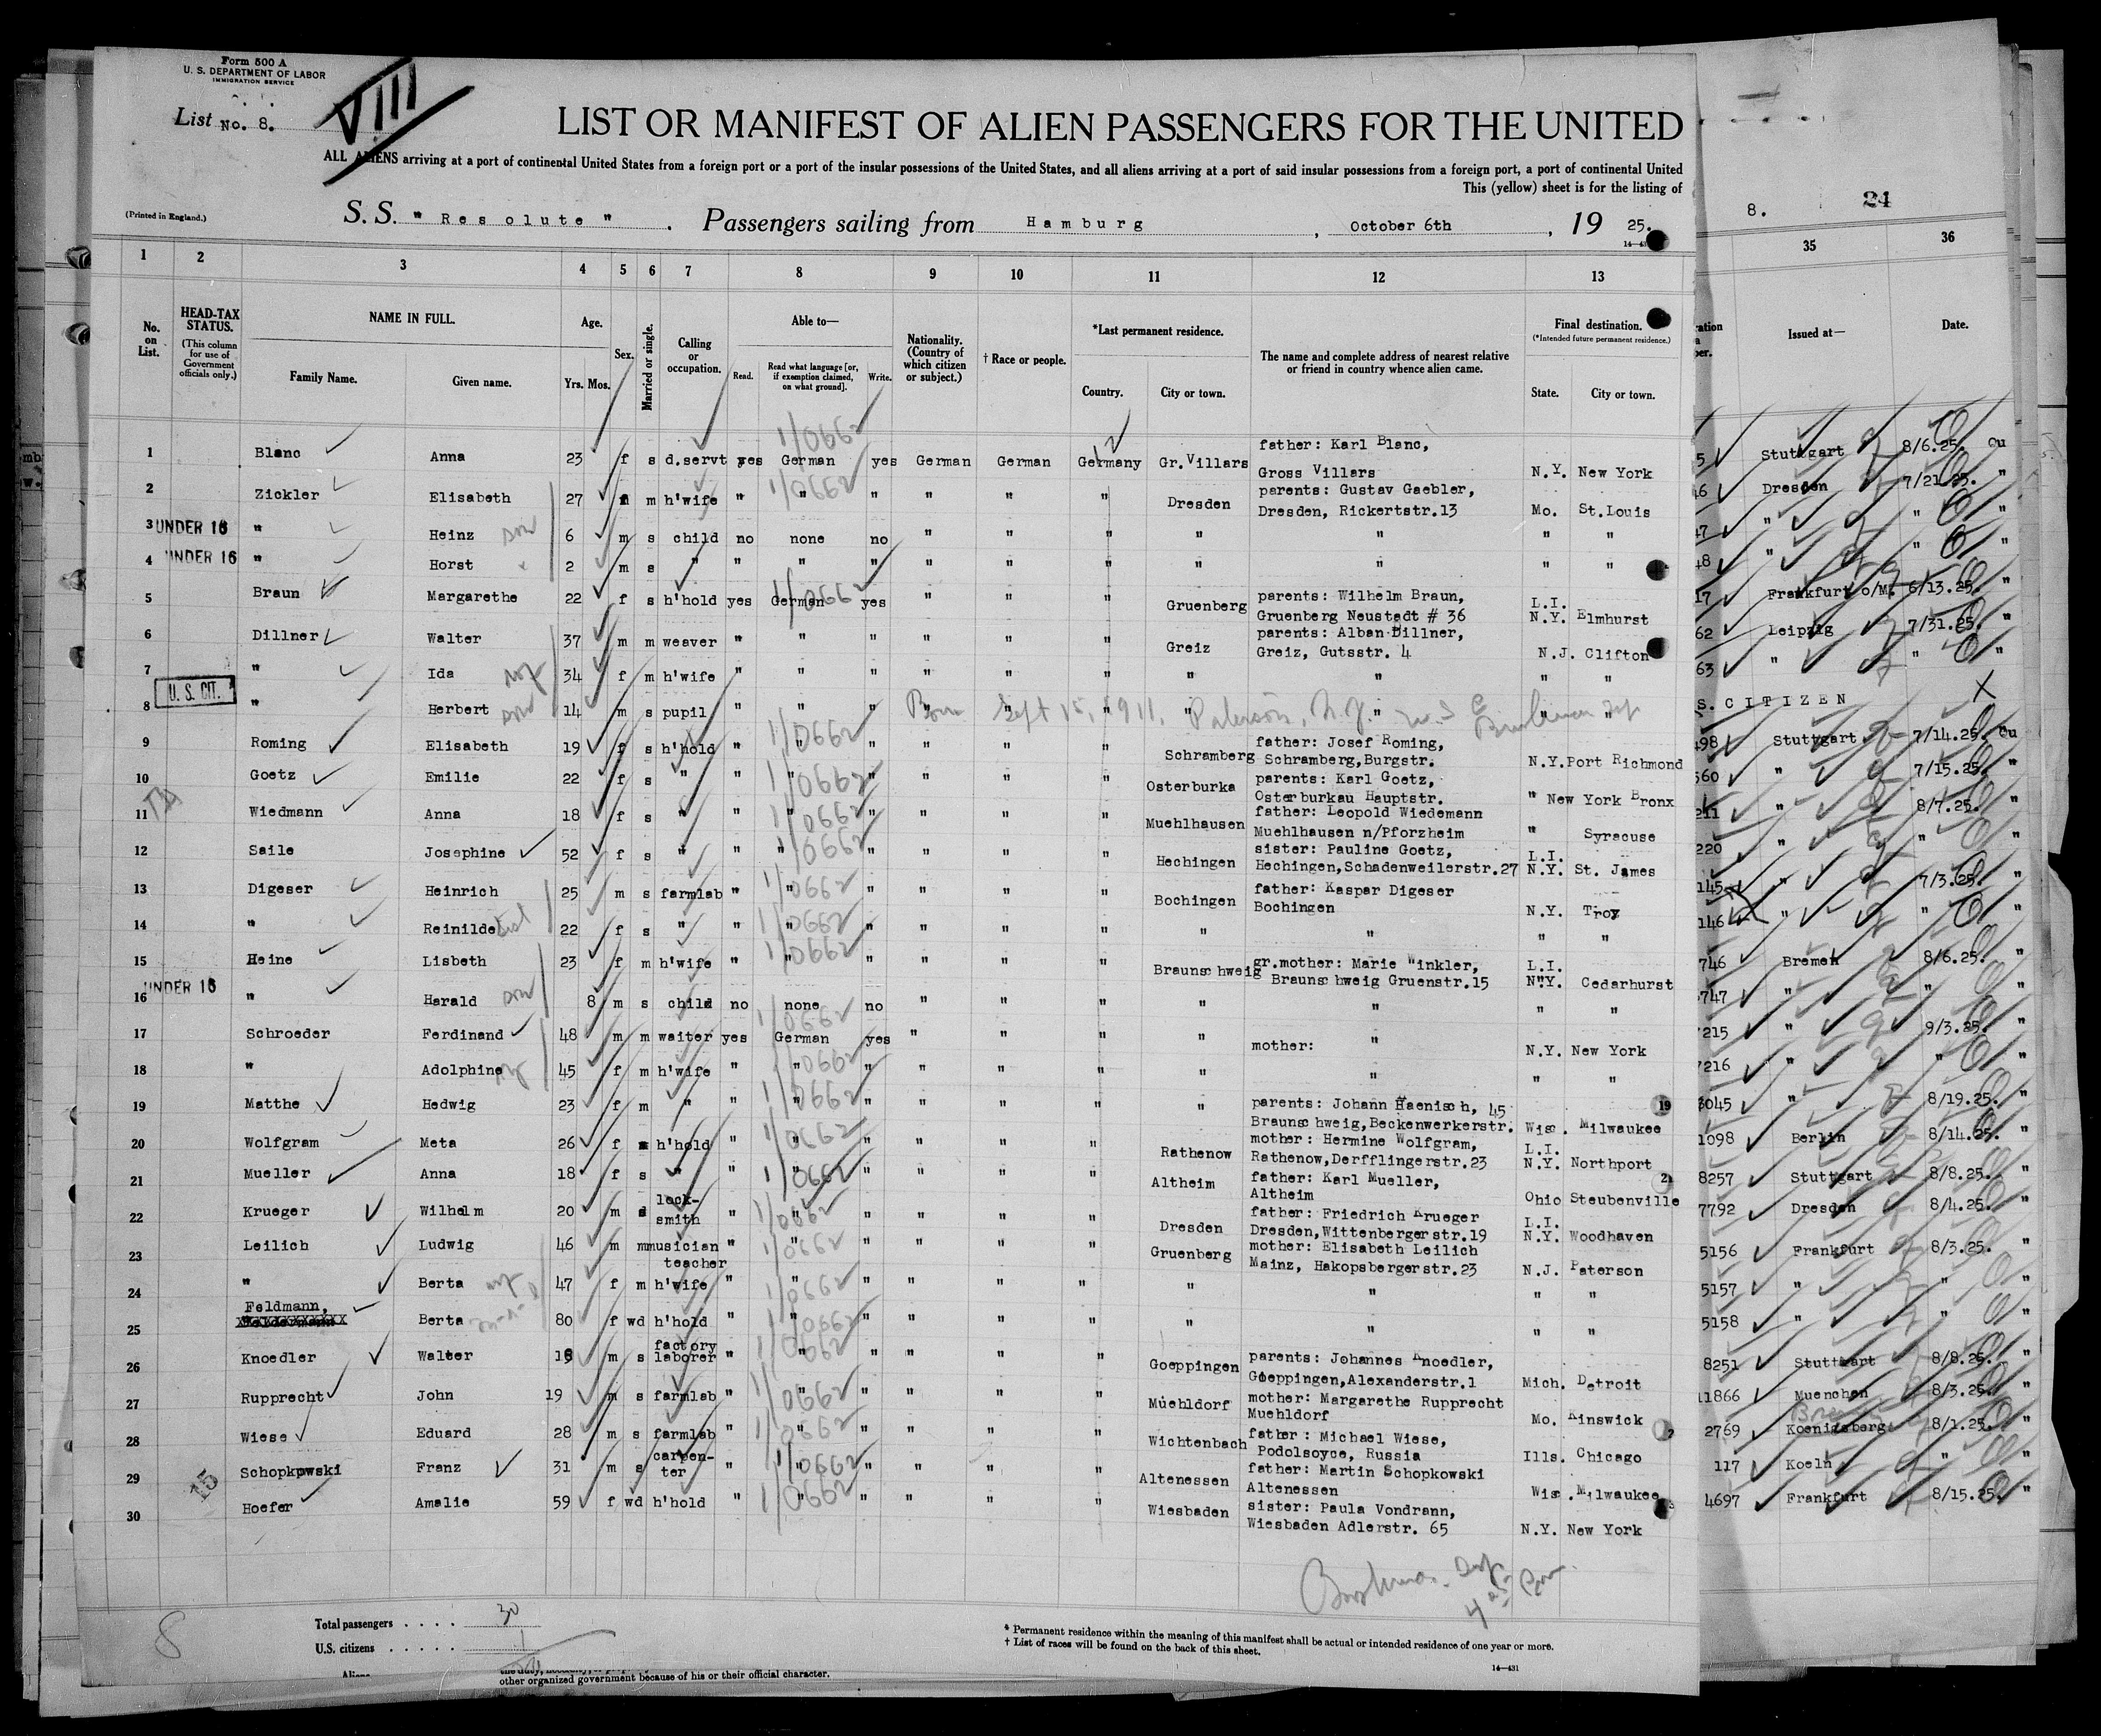 Form 500 A
U. S. DEPARTMENT OF LABOR
IMMIGRATION SERVICE
List No. 8.
VIII
LIST OR MANIFEST OF ALIEN PASSENGERS FOR THE UNITED
ALL ALIENS arriving at a port of continental United States from a foreign port or a port of the insular possessions of the United States, and all aliens arriving at a port of said insular possessions from a foreign port, a port of continental United
This (yellow) sheet is for the listing of
(Printed in England.)
S. S. "Resolute". Passengers sailing from Hamburg, October 6th, 19 25.
8. 24
1 2 3 4 5 6 7 8 9 10 11 12 13 35 36
No. on List.
HEAD-TAX STATUS. (This column for use of Government officials only.)
NAME IN FULL.
Family Name. Given name.
Age.
Yrs. Mos.
Sex.
Married or single.
Calling or occupation.
Able to—
Read. Read what language [or, if exemption claimed, on what ground]. Write.
Nationality. (Country of which citizen or subject.)
† Race or people.
*Last permanent residence.
Country. City or town.
The name and complete address of nearest relative or friend in country whence alien came.
Final destination. (*Intended future permanent residence.)
State. City or town.
Issued at— Date.
1 Blanc Anna 23 f s d.servt yes German yes German German Germany Gr.Villars father: Karl Blanc, Gross Villars N.Y. New York 5 Stuttgart 8/6.25. Qu
2 Zickler Elisabeth 27 f m h'wife " " " " " " Dresden parents: Gustav Gaebler, Dresden, Rickertstr.13 Mo. St.Louis 46 Dresden 7/21.25. "
3 UNDER 16 " Heinz son 6 m s child no none no " " " " " " " 47 " " "
4 UNDER 16 " Horst 2 m s " " " " " " " " " " " 48 " " "
5 Braun Margarethe 22 f s h'hold yes German yes " " " Gruenberg parents: Wilhelm Braun, Gruenberg Neustadt # 36 L.I. N.Y. Elmhurst 17 Frankfurt o/M. 6/13.25. "
6 Dillner Walter 37 m m weaver " " " " " " Greiz parents: Alban Dillner, Greiz, Gutsstr. 4 N.J. Clifton 62 Leipzig 7/31.25. "
7 " Ida wf 34 f m h'wife " " " " " " " " " " 63 " " "
U. S. CIT.
8 " Herbert son 14 m s pupil " " " " " " " " " " S. CITIZEN X
Born Sept 15, 1911, Paterson, N.J.
9 Roming Elisabeth 19 f s h'hold " " " " " " Schramberg father: Josef Roming, Schramberg,Burgstr. N.Y. Port Richmond 498 Stuttgart 7/14.25. Qu
10 Goetz Emilie 22 f s " " " " " " " Osterburka parents: Karl Goetz, Osterburkau Hauptstr. " New York Bronx 560 " 7/15.25. "
11 Wiedmann Anna 18 f s " " " " " " " Muehlhausen father: Leopold Wiedemann Muehlhausen n/Pforzheim " Syracuse 211 " 8/7.25. "
12 Saile Josephine 52 f s " " " " " " " Hechingen sister: Pauline Goetz, Hechingen,Schadenweilerstr.27 L.I. N.Y. St. James 220 " " "
13 Digeser Heinrich 25 m s farmlab " " " " " " Bochingen father: Kaspar Digeser Bochingen N.Y. Troy 145 " 7/3.25. "
14 " Reinilde sist 22 f s " " " " " " " " " " " 146 " " "
15 Heine Lisbeth 23 f m h'wife " " " " " " Braunschweig gr.mother: Marie Winkler, Braunschweig Gruenstr.15 L.I. N.Y. Cedarhurst 746 Bremen 8/6.25. "
16 UNDER 16 " Harald son 8 m s child no none no " " " " " " " 747 " " "
17 Schroeder Ferdinand 48 m m waiter yes German yes " " " " mother: " N.Y. New York 215 " 9/3.25. "
18 " Adolphine wf 45 f m h'wife " " " " " " " " " " 216 " " "
19 Matthe Hedwig 23 f m " " " " " " " " parents: Johann Haenisch, 45 Braunschweig,Beckenwerkerstr. Wis. Milwaukee 19 3045 " 8/19.25. "
20 Wolfgram Meta 26 f s h'hold " " " " " " Rathenow mother: Hermine Wolfgram, Rathenow,Derfflingerstr.23 L.I. N.Y. Northport 1098 Berlin 8/14.25. "
21 Mueller Anna 18 f s " " " " " " " Altheim father: Karl Mueller, Altheim Ohio Steubenville 21 8257 Stuttgart 8/8.25. "
22 Krueger Wilhelm 20 m s lock-smith " " " " " " Dresden father: Friedrich Krueger Dresden,Wittenbergerstr.19 L.I. N.Y. Woodhaven 7792 Dresden 8/4.25. "
23 Leilich Ludwig 46 m m musician teacher " " " " " " Gruenberg mother: Elisabeth Leilich Mainz, Hakopsbergerstr.23 N.J. Paterson 5156 Frankfurt 8/3.25. "
24 " Berta wf 47 f m h'wife " " " " " " " " " " 5157 " " "
25 Feldmann, Berta 80 f wd h'hold " " " " " " " " " " 5158 " " "
26 Knoedler Walter 18 m s factory laborer " " " " " " Goeppingen parents: Johannes Knoedler, Goeppingen,Alexanderstr.1 Mich. Detroit 8251 Stuttgart 8/8.25. "
27 Rupprecht John 19 m s farmlab " " " " " " Muehldorf mother: Margarethe Rupprecht Muehldorf Mo. Kinswick 11866 Muenchen 8/3.25. "
28 Wiese Eduard 28 m s farmlab " " " " " " Wichtenbach father: Michael Wiese, Podolsoyce, Russia Ills. Chicago 2769 Koenigsberg 8/1.25. "
29 Schopkowski Franz 31 m s carpen-ter " " " " " " Altenessen father: Martin Schopkowski Altenessen Wis. Milwaukee 117 Koeln " "
30 Hoefer Amalie 59 f wd h'hold " " " " " " Wiesbaden sister: Paula Vondrann, Wiesbaden Adlerstr. 65 N.Y. New York 4697 Frankfurt 8/15.25. "
15
8
Total passengers . . . . 30
U.S. citizens . . . . . 1
Aliens
other organized government because of his or their official character.
* Permanent residence within the meaning of this manifest shall be actual or intended residence of one year or more.
† List of races will be found on the back of this sheet.
14—431